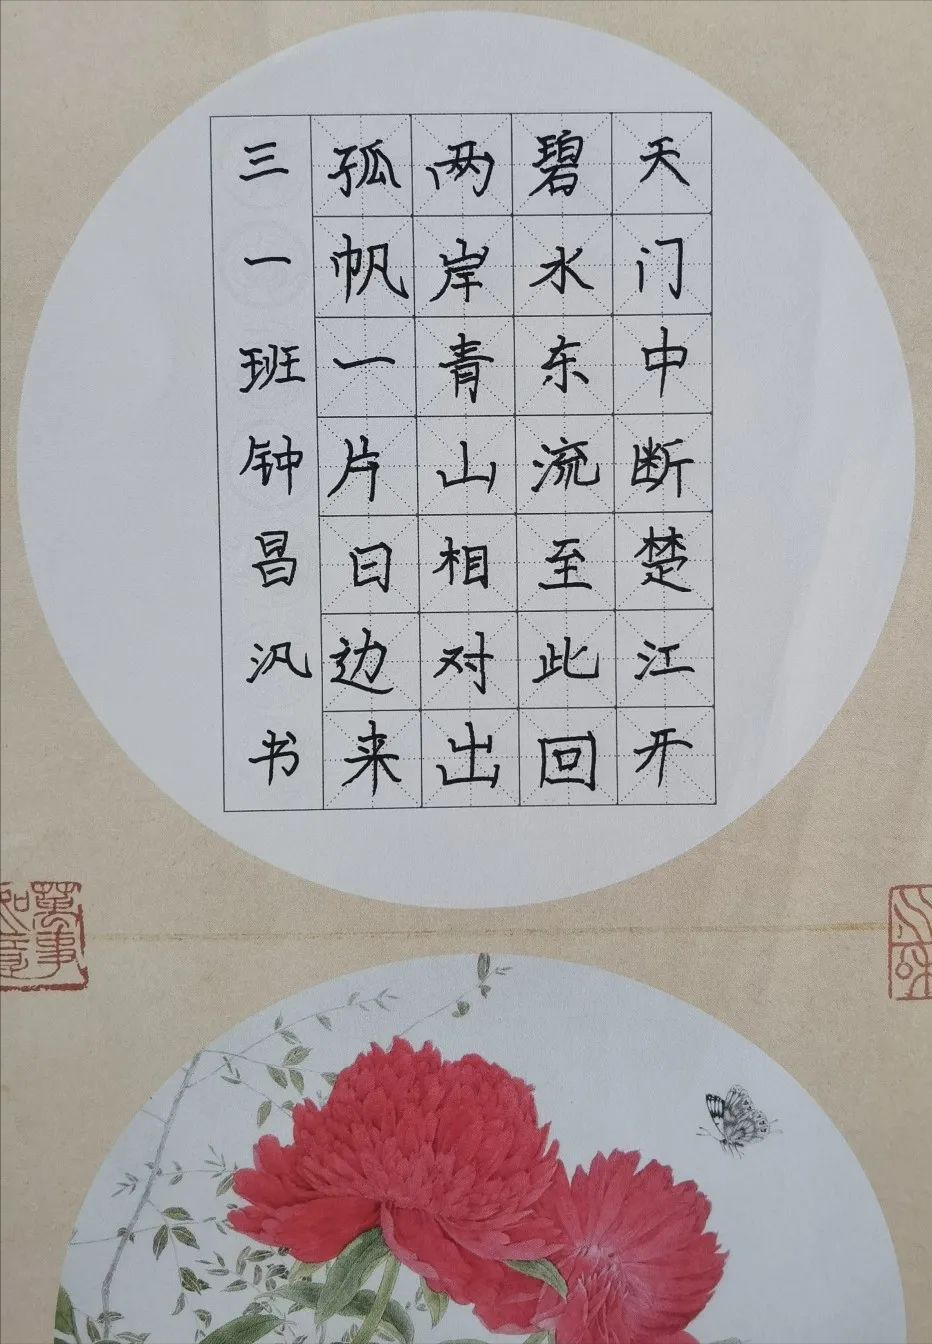 天门中断楚江开
碧水东流至此回
两岸青山相对出
孤帆一片日边来
三一班钟昌汎书
萬事如意